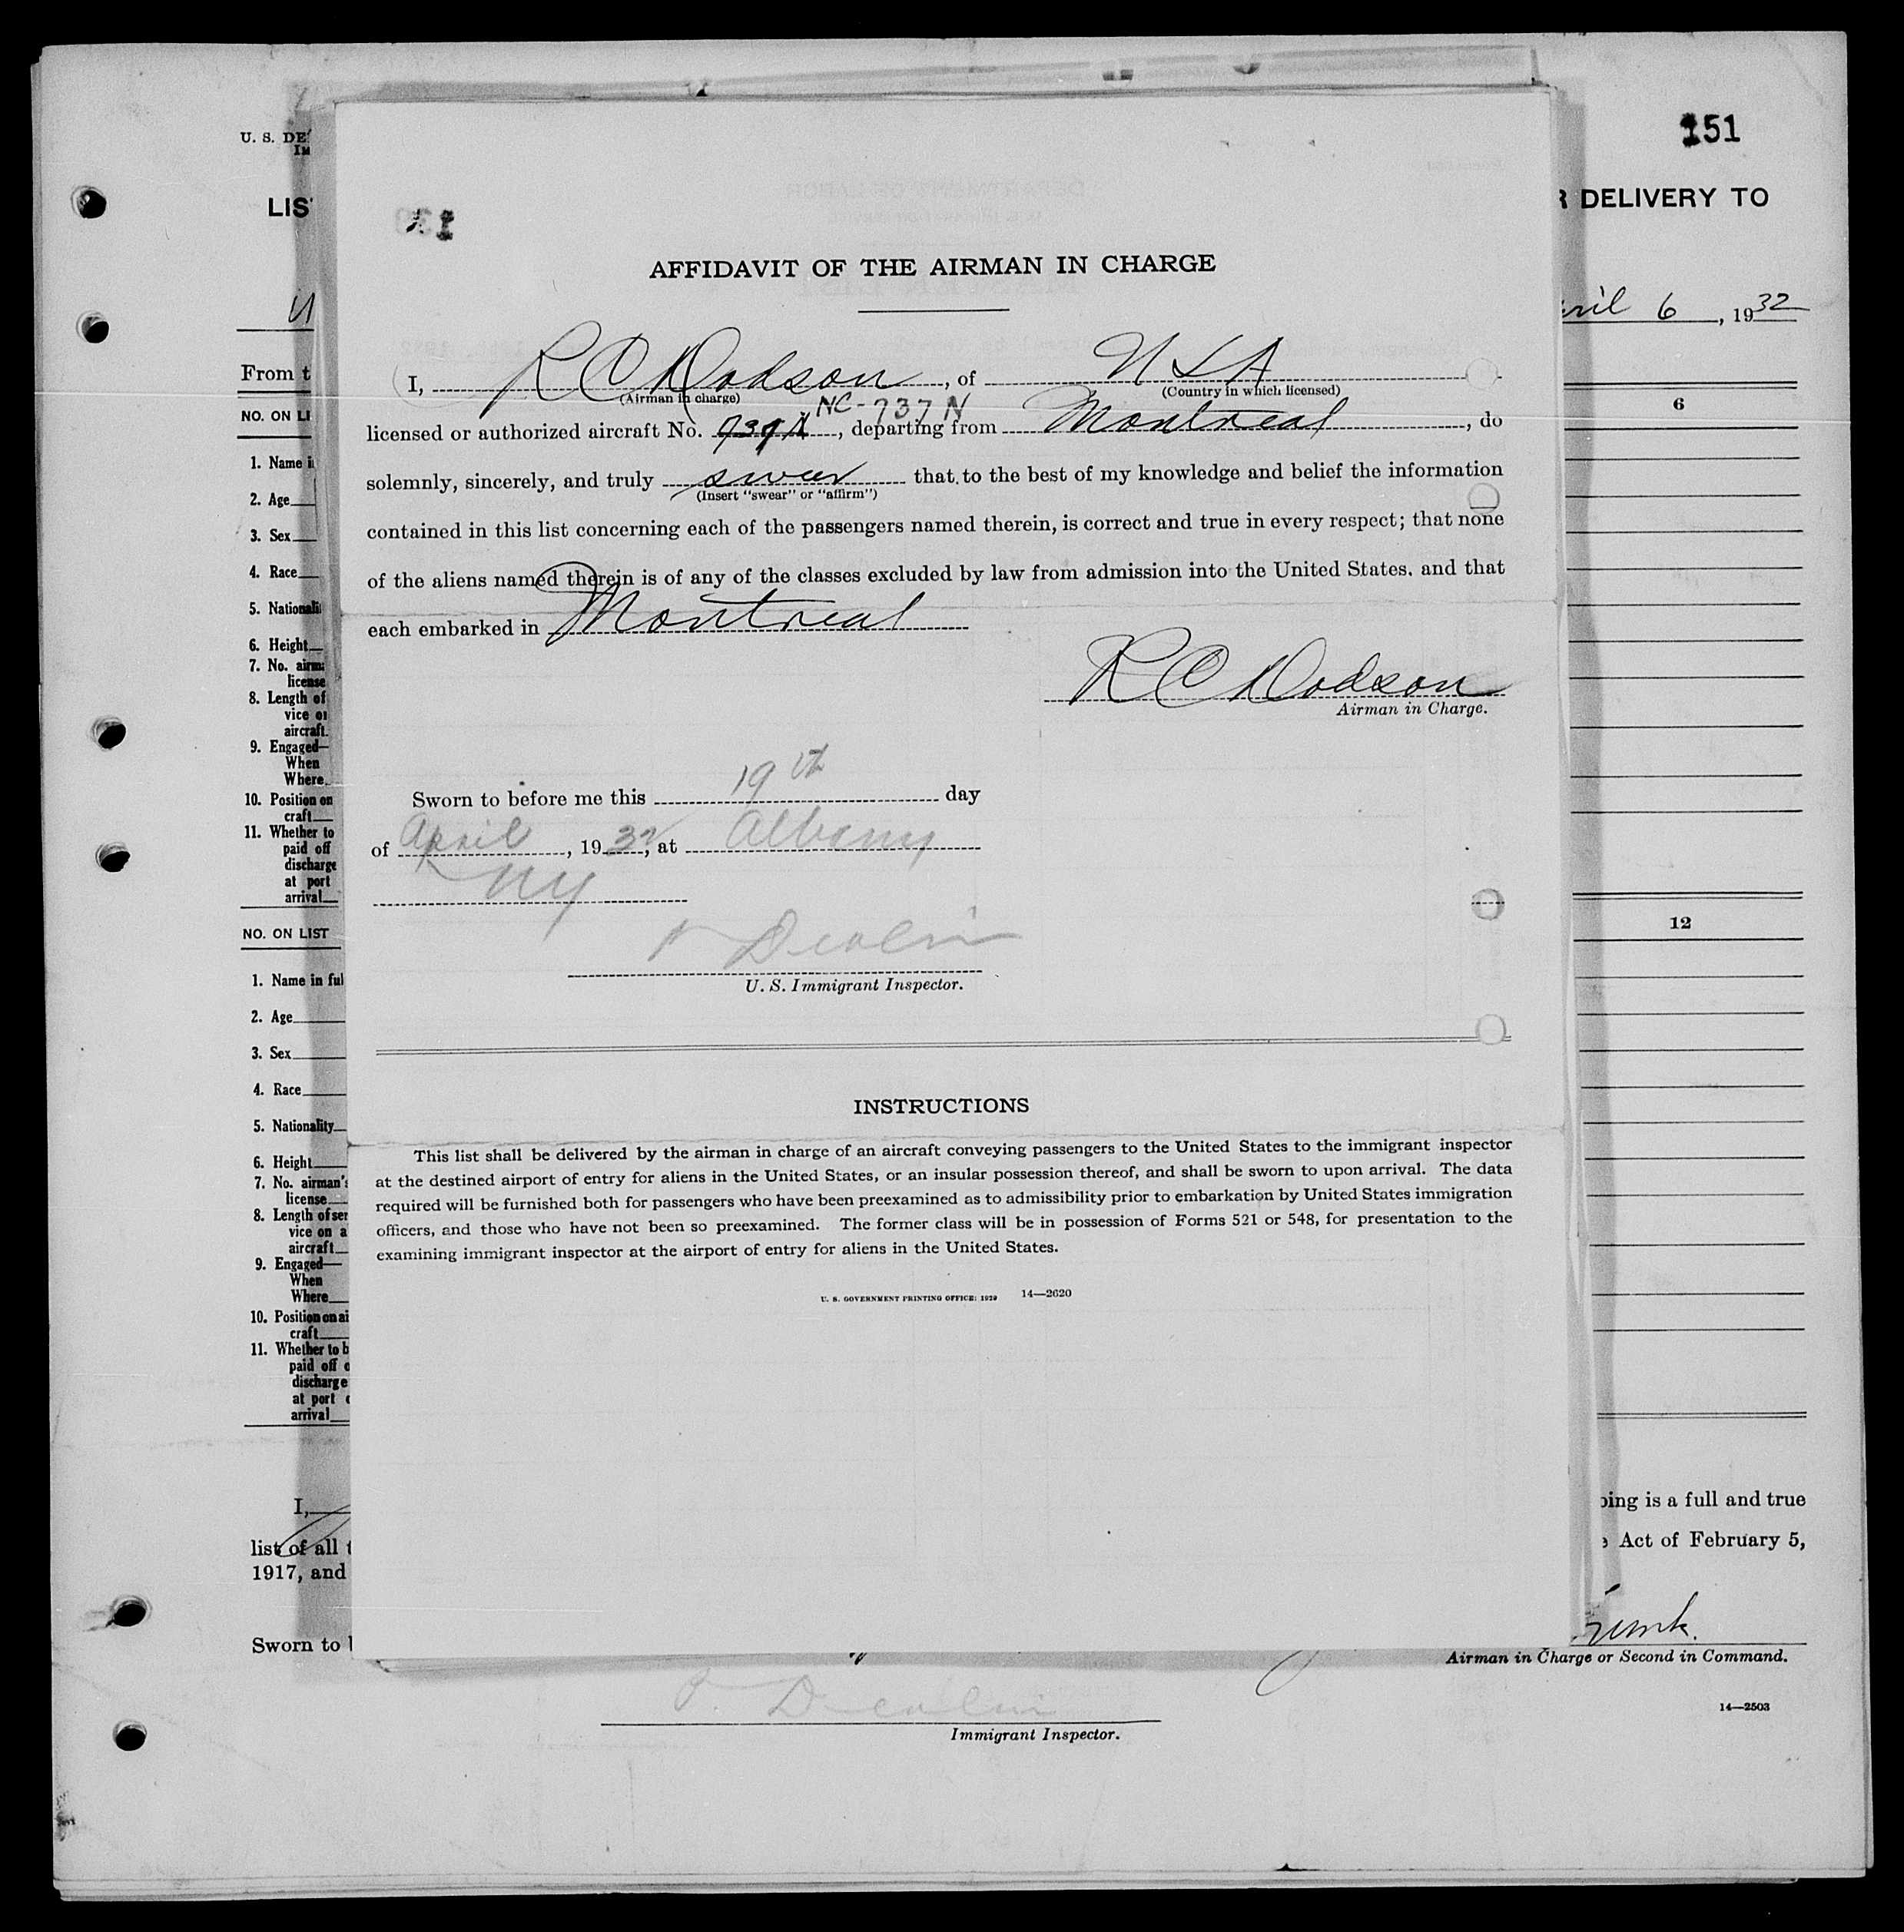 U. S. DE
IM
151
LIS
R DELIVERY TO
ril 6, 1932
From t
NO. ON LI
6
1. Name i
2. Age
3. Sex
4. Race
5. Nationali
6. Height
7. No. airm
license
8. Length of
vice or
aircraft.
9. Engaged—
When
Where
10. Position on
craft
11. Whether to
paid off
discharge
at port
arrival
NO. ON LIST
12
1. Name in ful
2. Age
3. Sex
4. Race
5. Nationality
6. Height
7. No. airman's
license
8. Length of ser
vice on a
aircraft
9. Engaged—
When
Where
10. Position on ai
craft
11. Whether to b
paid off o
discharge
at port o
arrival
I,
oing is a full and true
list of all t
e Act of February 5,
1917, and
Sworn to b
Airman in Charge or Second in Command.
Immigrant Inspector.
14—2503
AFFIDAVIT OF THE AIRMAN IN CHARGE
I, R C Dodson, of USA
(Airman in charge) (Country in which licensed)
NC-737N
licensed or authorized aircraft No. 737N, departing from Montreal, do
solemnly, sincerely, and truly swear that to the best of my knowledge and belief the information
(Insert "swear" or "affirm")
contained in this list concerning each of the passengers named therein, is correct and true in every respect; that none
of the aliens named therein is of any of the classes excluded by law from admission into the United States, and that
each embarked in Montreal
R C Dodson
Airman in Charge.
Sworn to before me this 19th day
of April, 1932, at Albany
NY
U. S. Immigrant Inspector.
INSTRUCTIONS
This list shall be delivered by the airman in charge of an aircraft conveying passengers to the United States to the immigrant inspector
at the destined airport of entry for aliens in the United States, or an insular possession thereof, and shall be sworn to upon arrival. The data
required will be furnished both for passengers who have been preexamined as to admissibility prior to embarkation by United States immigration
officers, and those who have not been so preexamined. The former class will be in possession of Forms 521 or 548, for presentation to the
examining immigrant inspector at the airport of entry for aliens in the United States.
U. S. GOVERNMENT PRINTING OFFICE: 1929 14—2620